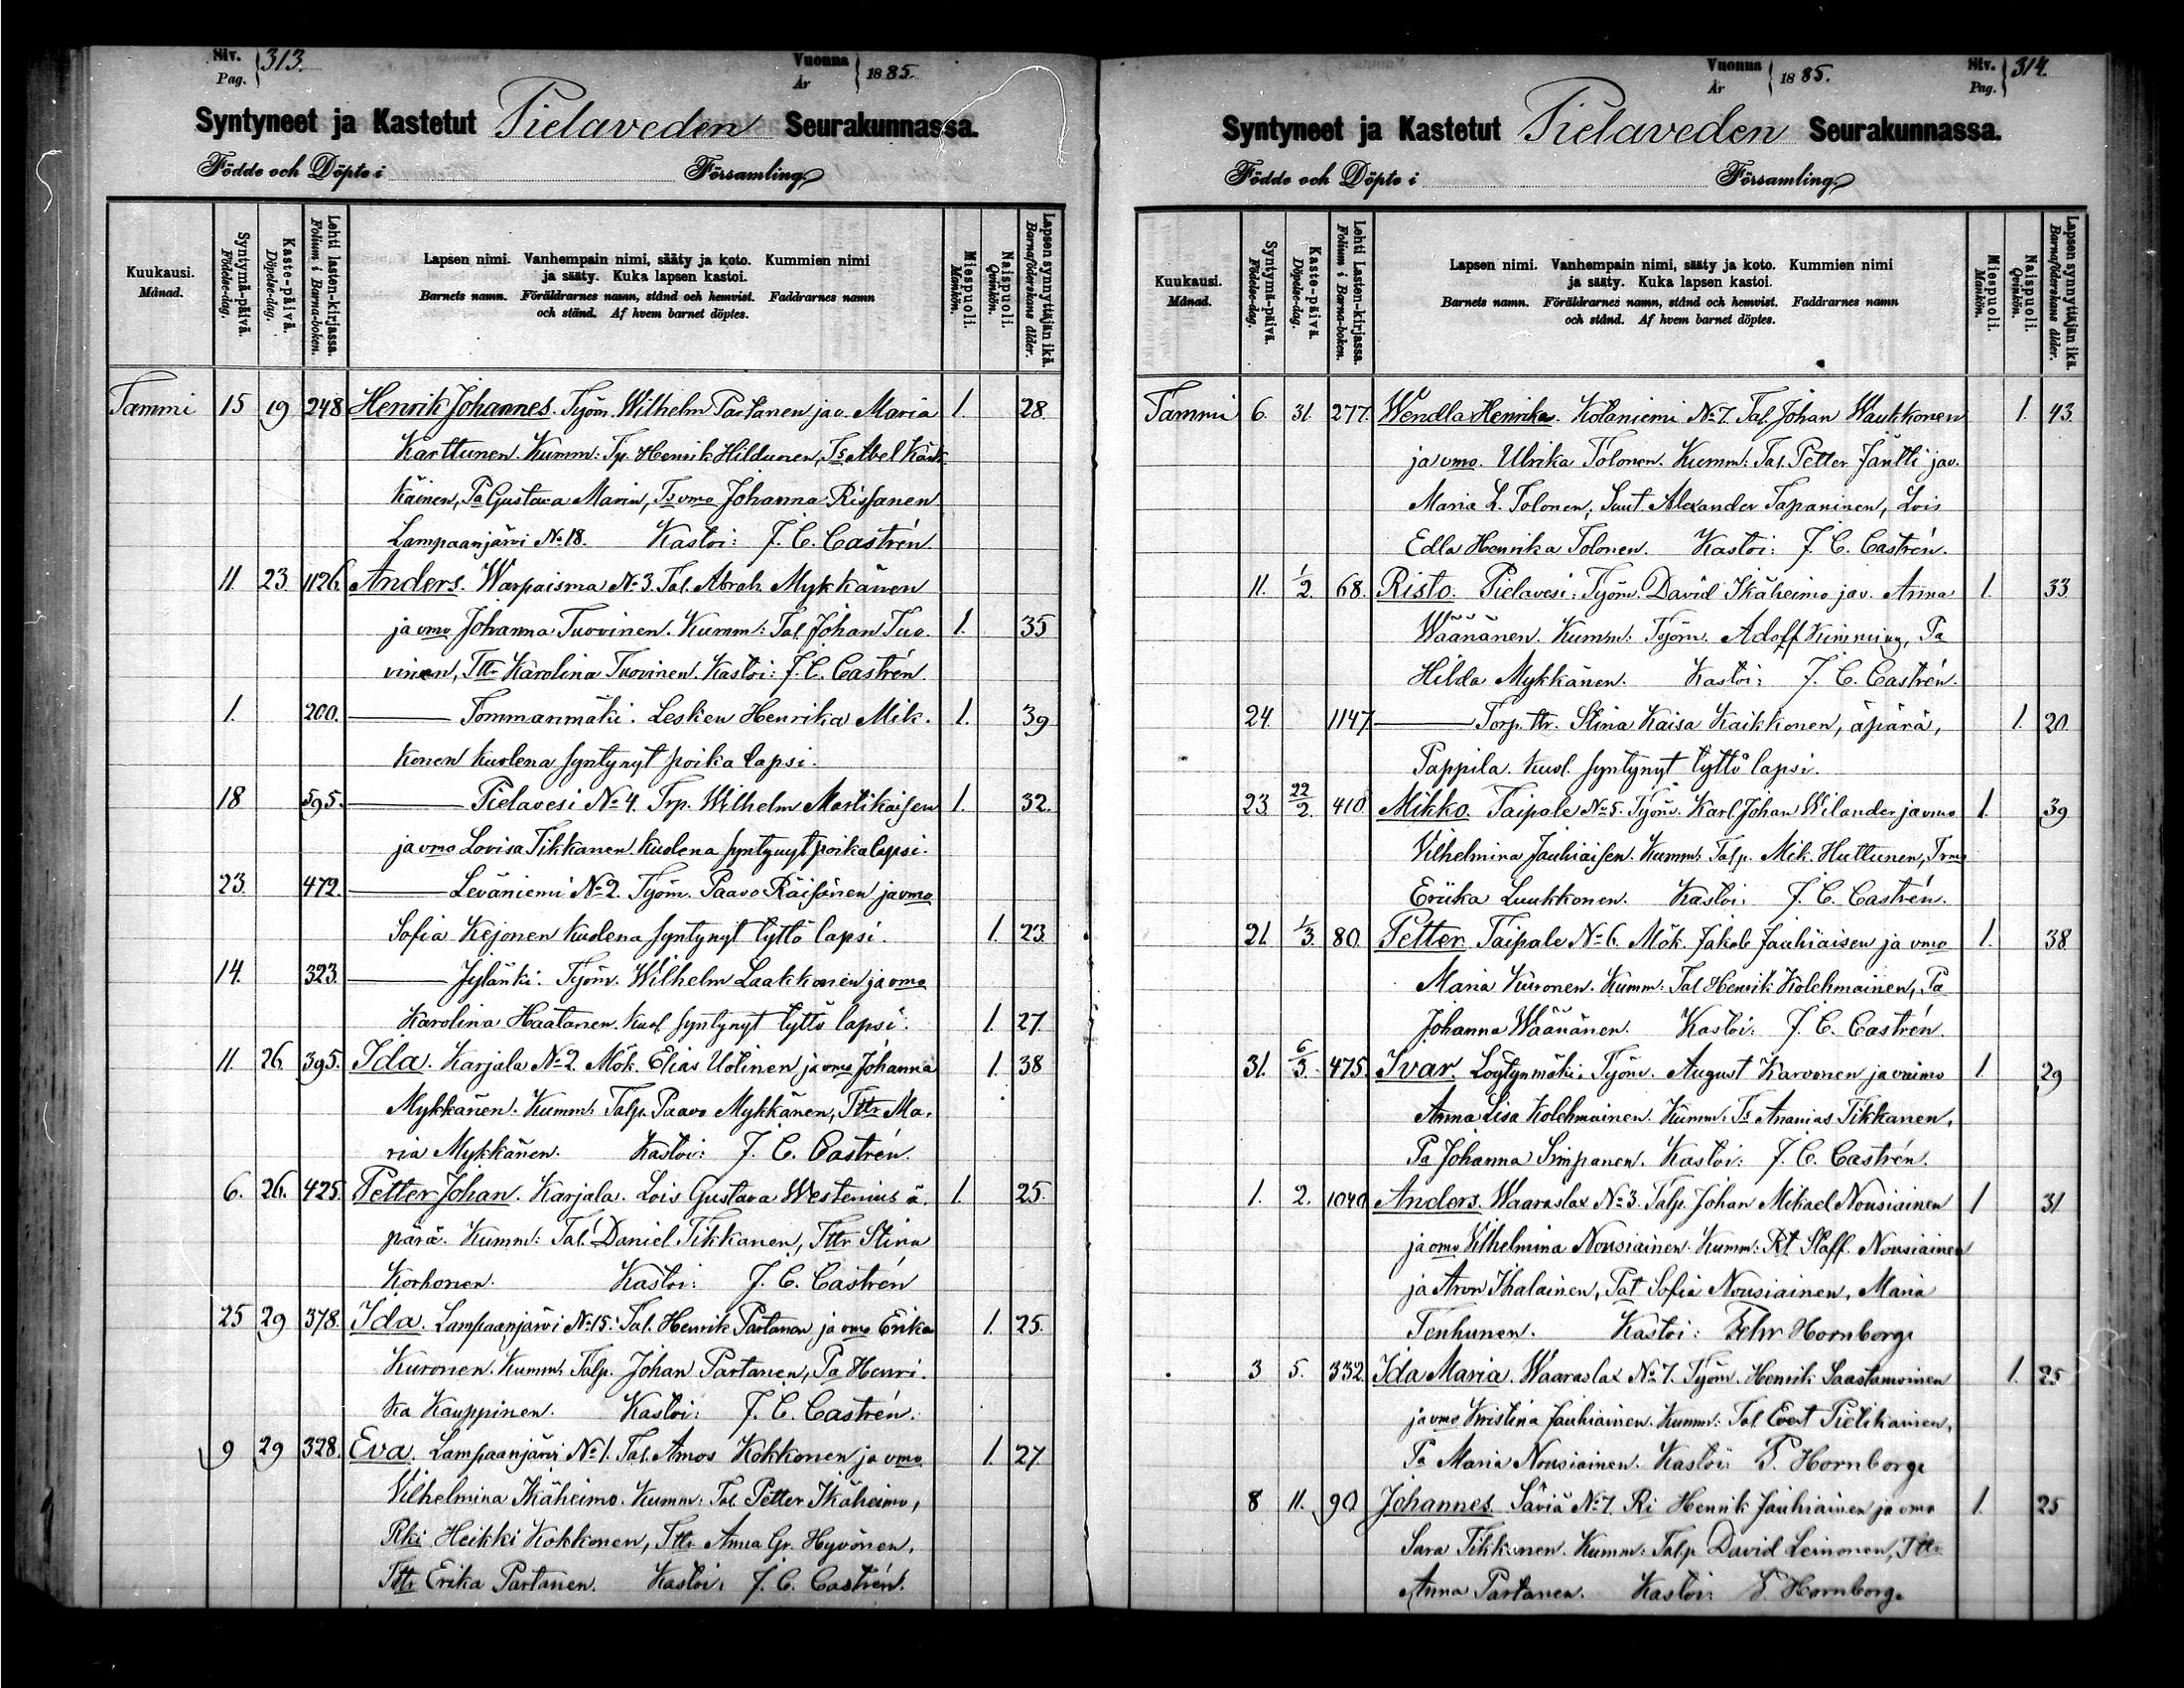 Siv. Pag. 313. Vuonna År 1885.
Syntyneet ja Kastetut Pielaveden Seurakunnassa.
Födde och Döpte i Församling
Kuukausi. Månad.
Syntymä-päivä. Födelse-dag.
Kaste-päivä. Döpelse-dag.
Lehti lasten-kirjassa. Folium i Barna-boken.
Lapsen nimi. Vanhempain nimi, sääty ja koto. Kummien nimi
ja sääty. Kuka lapsen kastoi.
Barnets namn. Föräldrarnes namn, stånd och hemvist. Faddrarnes namn
och stånd. Af hvem barnet döptes.
Miespuoli. Mankön.
Naispuoli. Qvinkön.
Lapsen synnyttäjän ikä. Barnaföderskans ålder.
Tammi 15 19 248 Henrik Johannes. Työm. Wilhelm Partanen ja v. Maria 1. 28.
Karttunen. Kumm: Tp. Henrik Hildunen, Ts Abel Kärk
käinen, Pa Gustava Marin, Ts vmo Johanna Rissanen
Lampaanjärvi No 18. Kastoi: J. C. Castrén.
11. 23. 1126. Anders. Warpaisma No 3. Tal. Abrah. Mykkänen
ja vmo Johanna Tuovinen. Kumm: Tal. Johan Tuo- 1. 35
vinen, Tttr Karolina Tuovinen. Kastoi: J. C. Castrén
1. 200. Tommanmäki. Lesken Henrika Mik- 1. 39
konen kuolena syntynyt poika lapsi.
18 595. Pielavesi No 4. Trp. Wilhelm Martikaisen 1. 32.
ja vmo Lovisa Tikkanen kuolena syntynyt poikalapsi.
23. 472. Leväniemi No 2. Työm. Paavo Räisänen ja vmo
Sofia Kejonen kuolena syntynyt tyttö lapsi. 1. 23.
14. 323. Jylänki. Työm. Wilhelm Laakkonen ja vmo
Karolina Haatanen. Kuol. syntynyt tyttö lapsi. 1. 27.
11. 26. 395. Ida. Karjala No 2. Mök. Elias Uotinen ja vmo Johanna 1. 38
Mykkänen. Kumm: Talp. Paavo Mykkänen, Tttr Ma-
ria Mykkänen. Kastoi: J. C. Castrén.
6. 26. 425. Petter Johan. Karjala. Lois Gustava Westenius ä- 1. 25.
pärä. Kumm: Tal. Daniel Tikkanen, Tttr Stina
Korhonen. Kastoi: J. C. Castrén
25 29 378. Ida. Lampaanjärvi No 15. Tal. Henrik Partanen ja vmo Erika 1. 25.
Kuronen. Kumm: Talp. Johan Partanen, Pa Henri-
ka Kauppinen. Kastoi: J. C. Castrén.
9 29 328. Eva. Lampaanjärvi No 1. Tal. Amos Kokkonen ja vmo 1. 27.
Vilhelmina Ikäheimo. Kumm: Tal. Petter Ikäheimo,
Rki Heikki Kokkonen, Tttr Anna Gr. Hyvönen,
Tttr Erika Partanen. Kastoi: J. C. Castrén.
Vuonna År 1885. Siv. Pag. 314.
Syntyneet ja Kastetut Pielaveden Seurakunnassa.
Födde och Döpte i Församling
Kuukausi. Månad.
Syntymä-päivä. Födelse-dag.
Kaste-päivä. Döpelse-dag.
Lehti Lasten-kirjassa. Folium i Barna-boken.
Lapsen nimi. Vanhempain nimi, sääty ja koto. Kummien nimi
ja sääty. Kuka lapsen kastoi.
Barnets namn. Föräldrarnes namn, stånd och hemvist. Faddrarnes namn
och stånd. Af hvem barnet döptes.
Miespuoli. Mankön.
Naispuoli. Qvinkön.
Lapsen synnyttäjän ikä. Barnaföderskans ålder.
Tammi 6. 31. 277. Wendla Henrika. Kotaniemi No 7. Tal. Johan Waukkonen 1. 43.
ja vmo. Ulrika Tolonen. Kumm: Tal. Petter Jäntti ja v.
Maria L. Tolonen, Suut. Alexander Tapaninen, Lois
Edla Henrika Tolonen. Kastoi: J. C. Castrén.
11. 1/2. 68. Risto. Pielavesi: Työm. David Ikäheimo ja v. Anna 1. 33
Väänänen. Kumm: Työm. Adolf Kimming, Pa
Hilda Mykkänen. Kastoi: J. C. Castrén.
24. 1147. Torp. ttr. Stina Kaisa Kaikkonen, äpärä, 1. 20.
Pappila. Kuol. syntynyt tyttö lapsi.
23. 22/2. 410. Mikko. Taipale No 5. Työm. Karl Johan Wilander ja vmo 1. 39
Vilhelmina Jauhiaisen. Kumm: Talp. Mik. Huttunen, Tvmo
Eriika Luukkonen. Kastoi: J. C. Castrén.
21. 1/3. 80. Petter. Taipale No 6. Mök. Jakob Jauhiaisen ja vmo 1. 38
Maria Kuronen. Kumm: Tal. Henrik Kolehmainen, Pa
Johanna Väänänen. Kastoi: J. C. Castrén.
31. 6/3. 475. Ivar. Löytynmäki. Työm. August Karvonen ja vaimo 1. 29
Anna Lisa Kolehmainen. Kumm: Ts Ananias Tikkanen,
Pa Johanna Simpanen. Kastoi: J. C. Castrén.
1. 2. 1040 Anders. Waaraslax No 3. Talp. Johan Mikael Nousiainen 1 31
ja vmo Vilhelmina Nousiainen. Kumm: Rt. Staff. Nousiainen
ja Aron Ihalainen, Pat Sofia Nousiainen, Maria
Tenhunen. Kastoi: Fehr Hornborg.
3 5. 332. Ida Maria. Waaraslax No 7. Työm. Henrik Saastamoinen 1. 25
ja vmo Kristina Jauhiainen. Kumm: Tal. Evert Pietikäinen,
Pa Maria Nousiainen. Kastoi: F. Hornborg.
8 11. 90. Johannes. Säviä No 7. Ri Henrik Jauhiainen ja vmo 1. 25
Sara Tikkanen. Kumm: Talp. David Leinonen, Tttr
Anna Partanen. Kastoi: F. Hornborg.